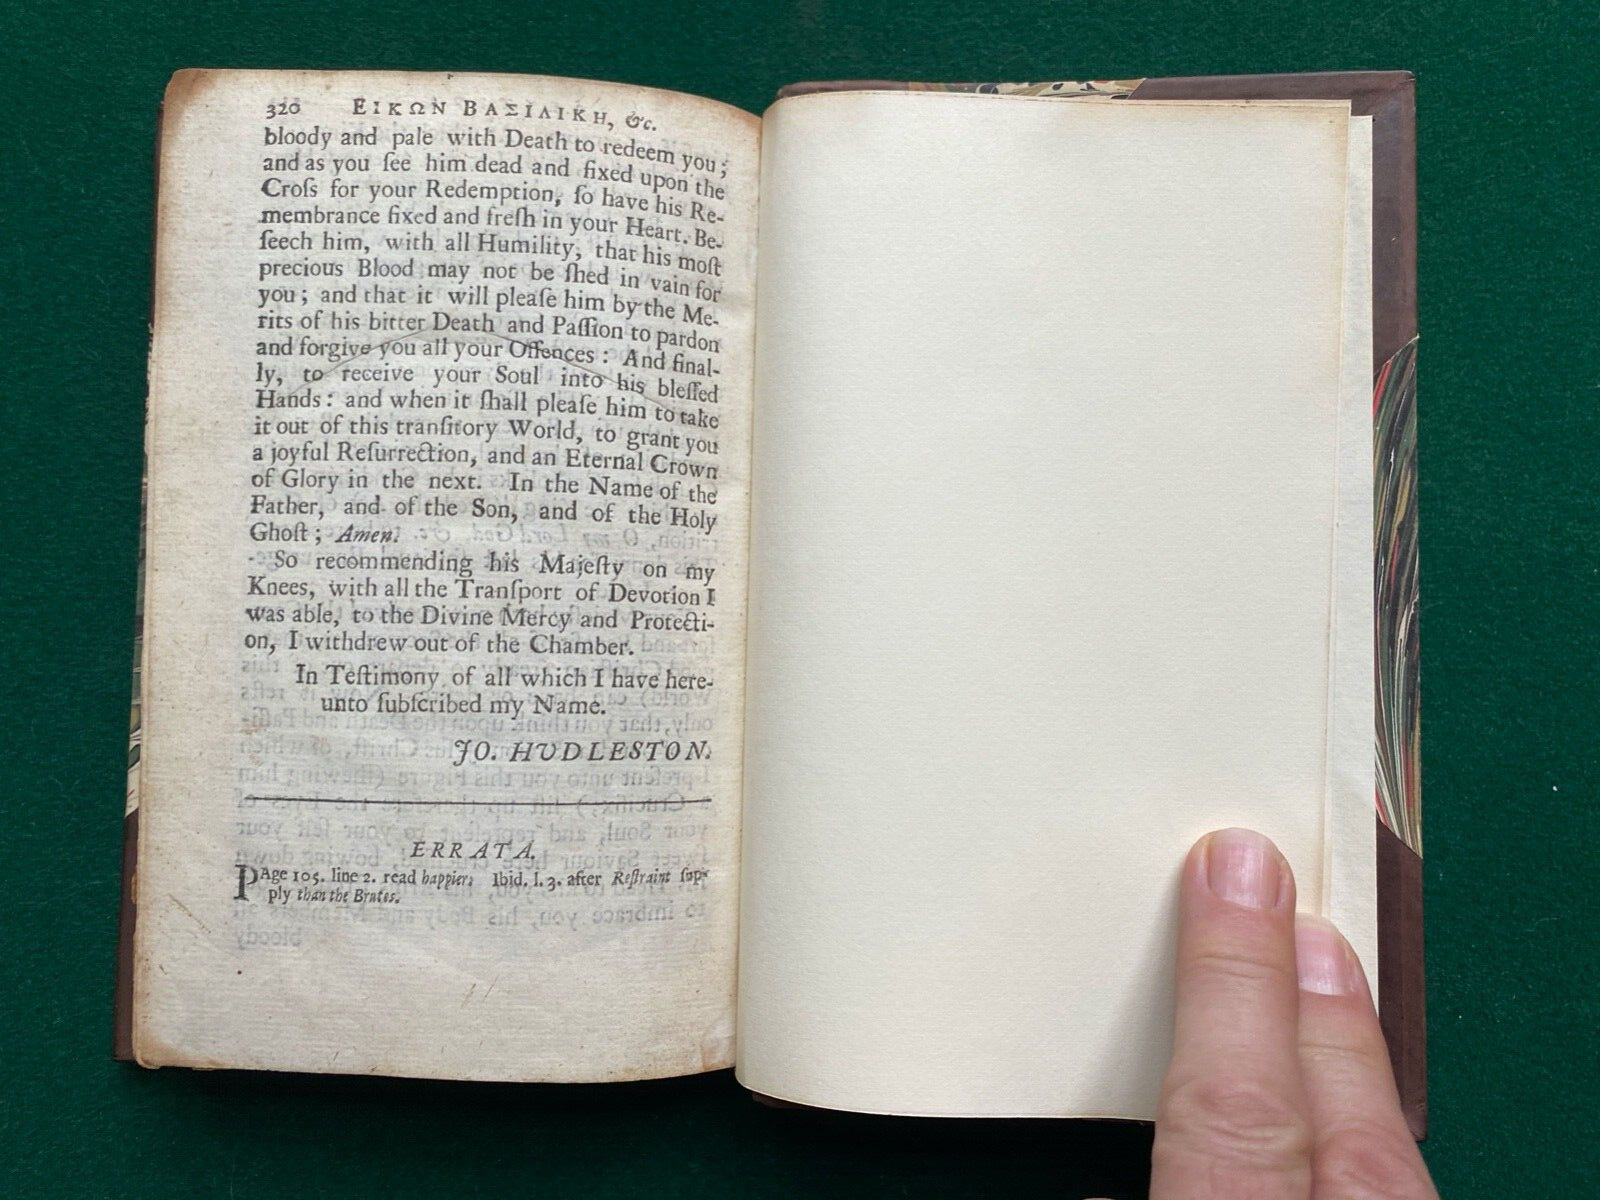 320 ΕΙΚΩΝ ΒΑΣΙΛΙΚΗ, &c.
bloody and pale with Death to redeem you;
and as you ſee him dead and fixed upon the
Croſs for your Redemption, ſo have his Re-
membrance fixed and freſh in your Heart. Be-
ſeech him, with all Humility, that his moſt
precious Blood may not be ſhed in vain for
you; and that it will pleaſe him by the Me-
rits of his bitter Death and Paſſion to pardon
and forgive you all your Offences: And final-
ly, to receive your Soul into his bleſſed
Hands: and when it ſhall pleaſe him to take
it out of this tranſitory World, to grant you
a joyful Reſurrection, and an Eternal Crown
of Glory in the next. In the Name of the
Father, and of the Son, and of the Holy
Ghoſt; Amen.
So recommending his Majeſty on my
Knees, with all the Tranſport of Devotion I
was able, to the Divine Mercy and Protecti-
on, I withdrew out of the Chamber.
In Teſtimony of all which I have here-
unto ſubſcribed my Name.
JO. HVDLESTON.
ERRATA.
PAge 105. line 2. read happier; Ibid. l. 3. after Reſtraint ſup-
ply than the Brutes.